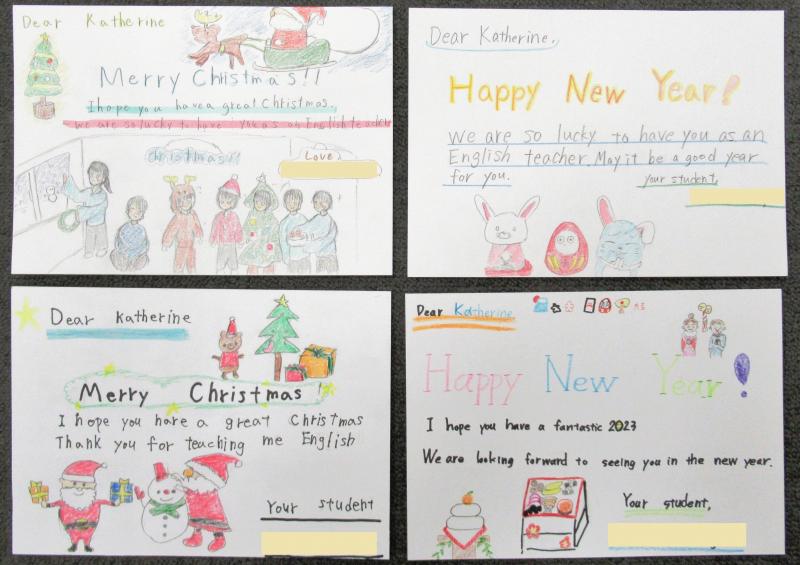 Dear Katherine
Merry Christmas!!
I hope you have a great Christmas.
We are so lucky to have you as an English teacher
Christmas!!
Love,
Dear Katherine,
Happy New Year!
We are so lucky to have you as an
English teacher. May it be a good year
for you.
your student,
Dear Katherine
Merry Christmas!
I hope you have a great Christmas
Thank you for teaching me English
Your student
Dear Katherine
Happy New Year!
I hope you have a fantastic 2023
We are looking forward to seeing you in the new year.
Your student,